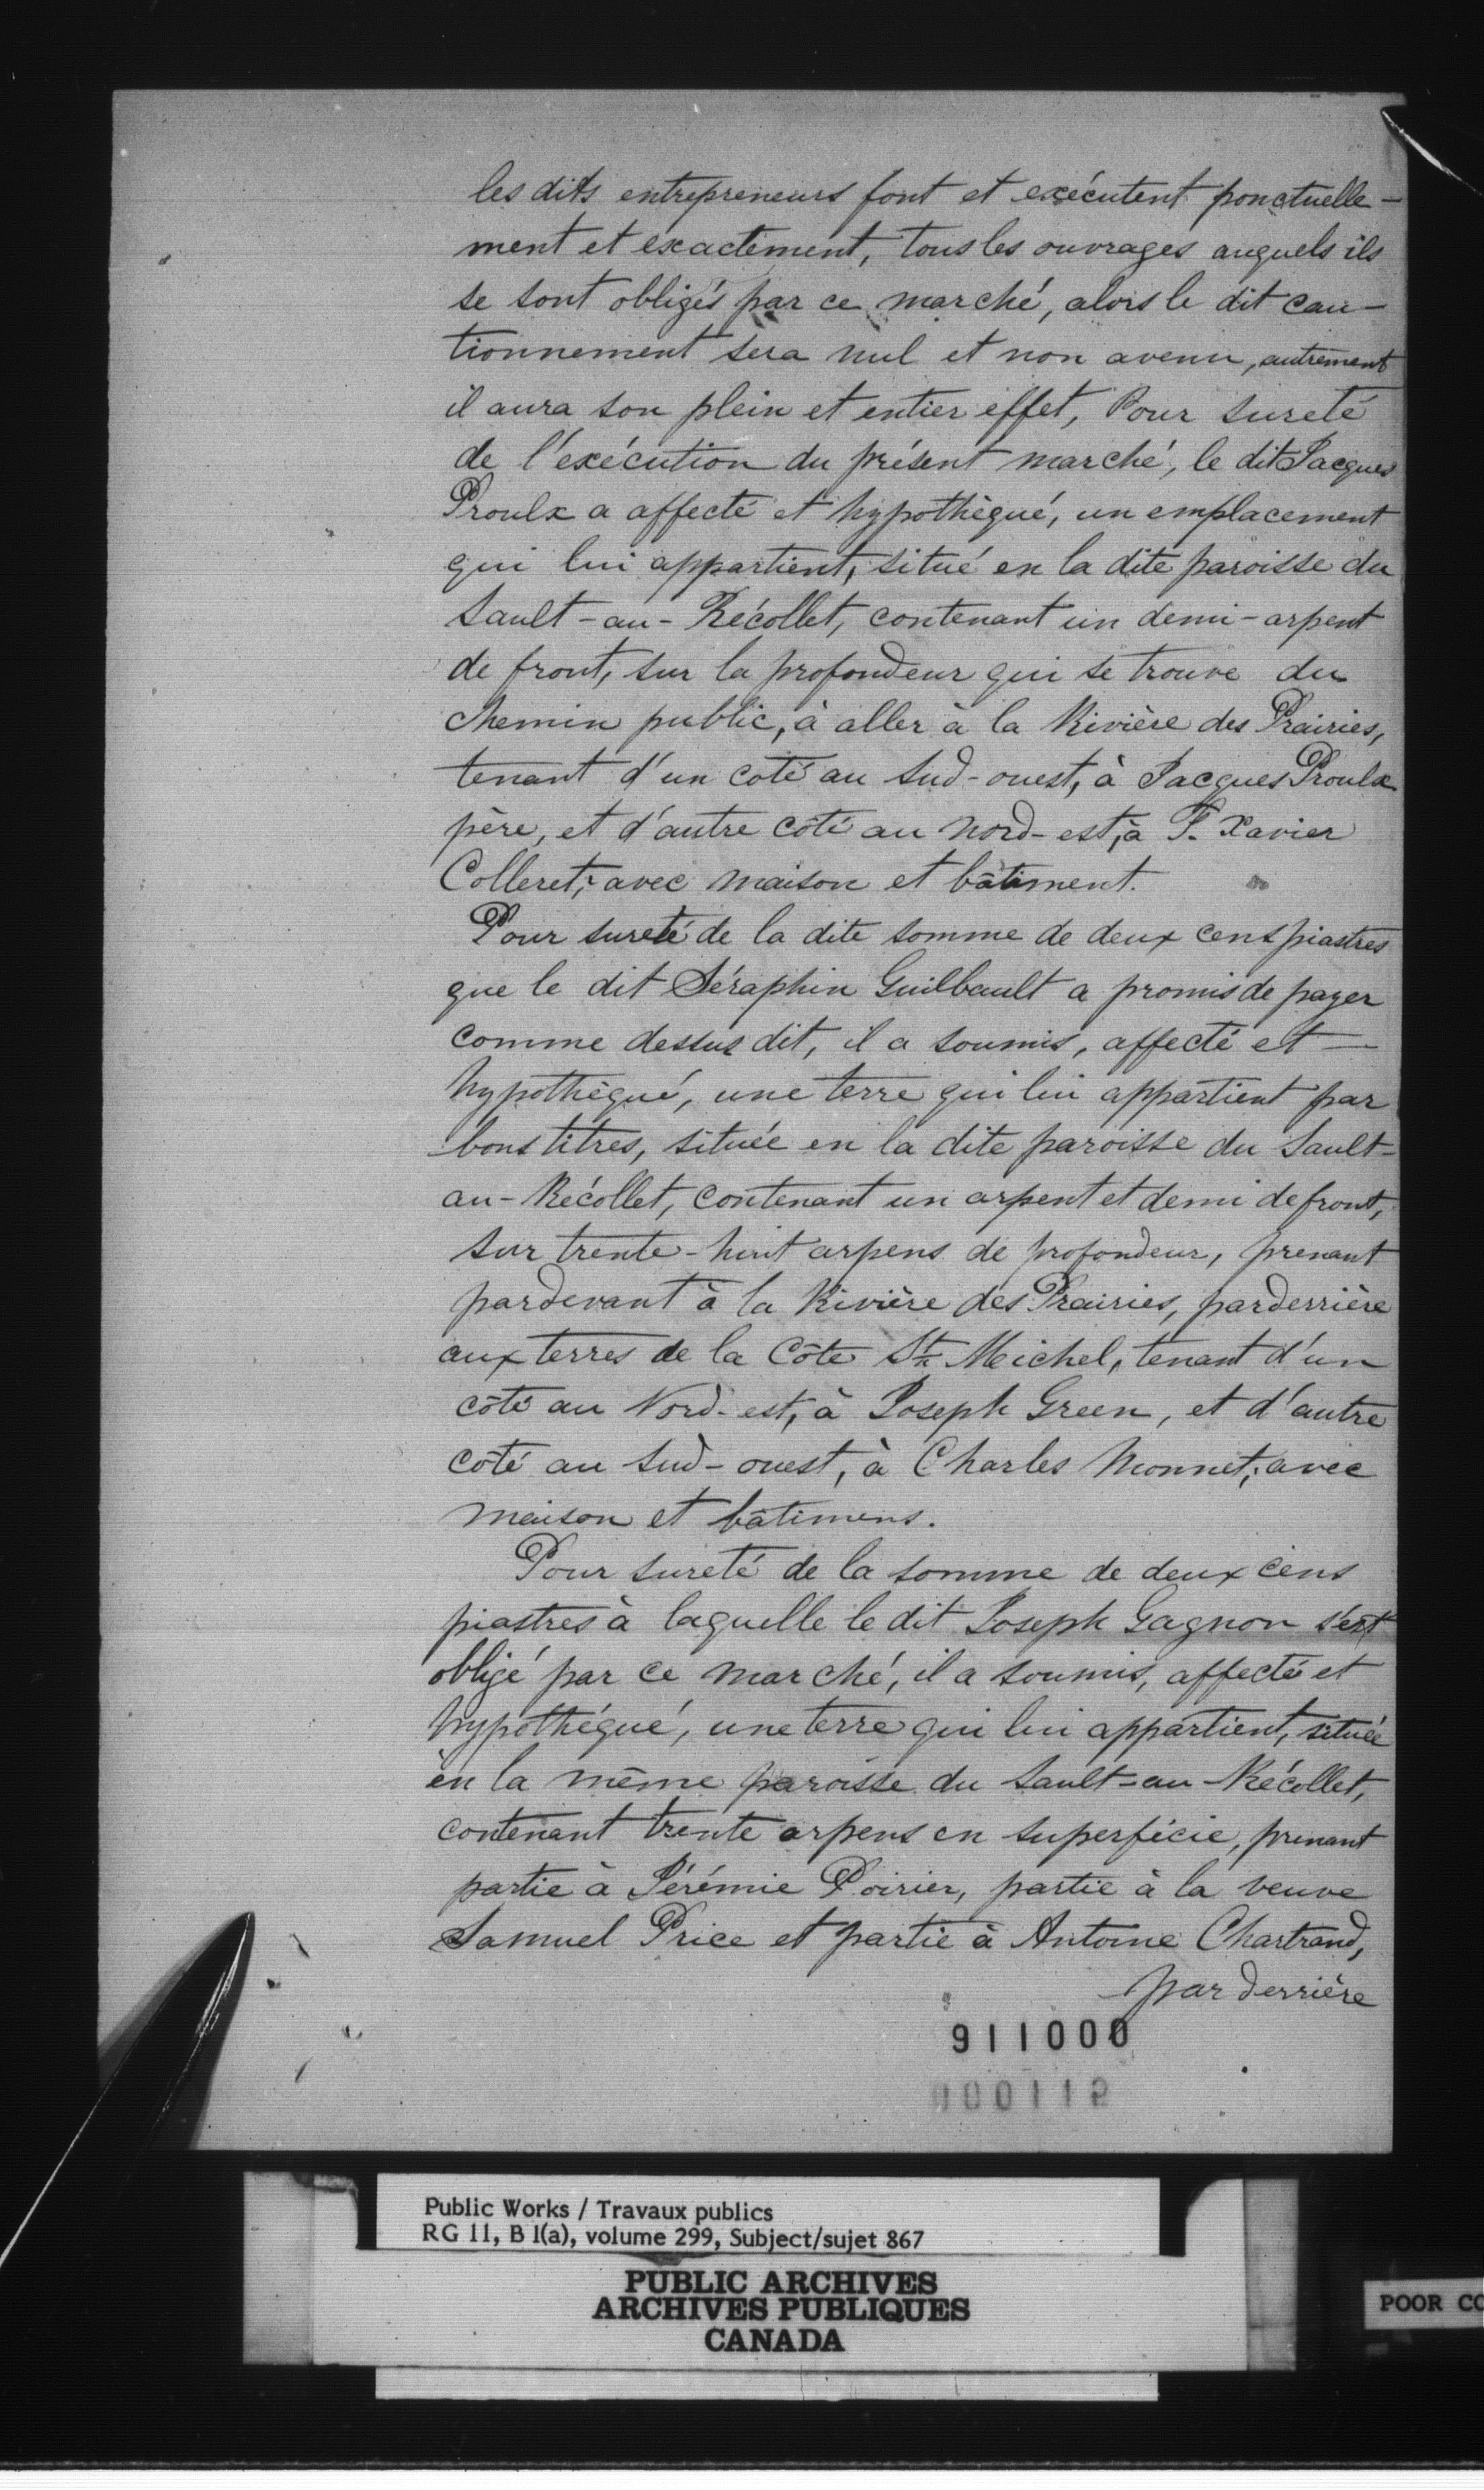 les dits entrepreneurs font et exécutent ponctuelle-
ment et exactement, tous les ouvrages auquels ils
se sont obligés par ce marché, alors le dit cau-
tionnement sera nul et non avenu, autrement
il aura son plein et entier effet, Pour sureté
de l'exécution du présent marché, le dit Jacques
Proulx a affecté et hypothèqué, un emplacement
qui lui appartient, situé en la dite paroisse du
Sault-au-Récollet, contenant un demi-arpent
de front, sur la profondeur qui se trouve du
chemin public, à aller à la Rivière des Prairies,
tenant d'un coté au Sud-ouest, à Jacques Proulx
père, et d'autre côté au nord-est, à F. Xavier
Colleret; avec maison et bâtiment.
Pour sureté de la dite somme de deux cens piastres
que le dit Séraphin Guilbault a promis de payer
comme dessus dit, il a soumis, affecté et —
hypothèqué, une terre qui lui appartient par
bons titres, située en la dite paroisse du Sault-
au-Récollet, contenant un arpent et demi de front,
sur trente-huit arpens de profondeur, prenant
pardevant à la Rivière des Prairies, parderrière
aux terres de la Côte St. Michel, tenant d'un
côté au Nord-est, à Joseph Green, et d'autre
côté au Sud-ouest, à Charles Monnet; avec
maison et bâtimens.
Pour sureté de la somme de deux cens
piastres à laquelle le dit Joseph Gagnon s'est
obligé par ce marché, il a soumis, affecté et
hypothéqué, une terre qui lui appartient, située
en la même paroisse du Sault-au-Récollet,
contenant trente arpens en superficie, prenant
partie à Jérémie Poirier, partie à la veuve
Samuel Price et partie à Antoine Chartrand,
par derrière
911000
000112
Public Works / Travaux publics
RG 11, B 1(a), volume 299, Subject/sujet 867
PUBLIC ARCHIVES
ARCHIVES PUBLIQUES
CANADA
POOR CO